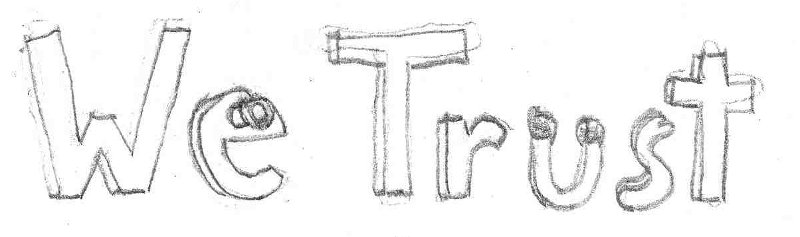 We Trust